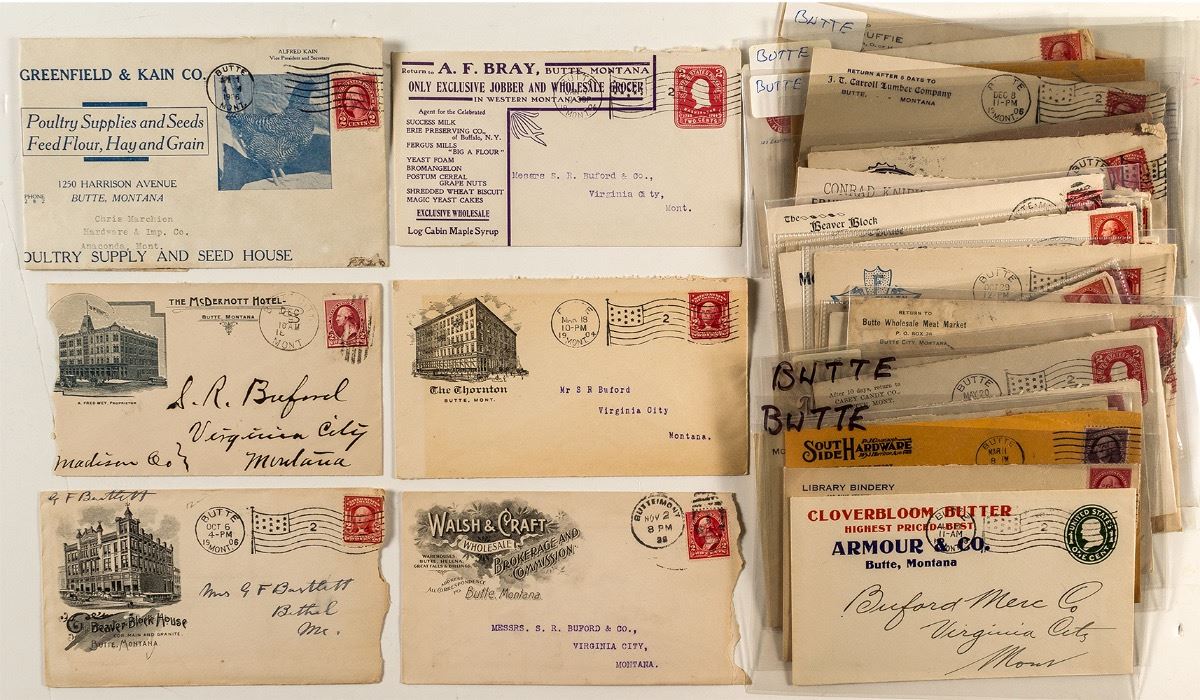 GREENFIELD & KAIN CO.
ALFRED KAIN
Vice President and Secretary
BUTTE
MONT.
Poultry Supplies and Seeds
Feed Flour, Hay and Grain
1250 HARRISON AVENUE
BUTTE, MONTANA
PHONE
Chris Marchion
Hardware & Imp. Co.
Anaconda, Mont.
OULTRY SUPPLY AND SEED HOUSE
Return to A. F. BRAY, BUTTE, MONTANA
ONLY EXCLUSIVE JOBBER AND WHOLESALE GROCER
IN WESTERN MONTANA
2
TWO CENTS
Agent for the Celebrated
SUCCESS MILK
ERIE PRESERVING CO.,
of Buffalo, N. Y.
FERGUS MILLS
"BIG A FLOUR"
YEAST FOAM
BROMANGELON
POSTUM CEREAL
GRAPE NUTS
SHREDDED WHEAT BISCUIT
MAGIC YEAST CAKES
EXCLUSIVE WHOLESALE
Log Cabin Maple Syrup
Messrs S. R. Buford & Co.,
Virginia City,
Mont.
THE MCDERMOTT HOTEL
BUTTE, MONTANA
DEC
10 AM
MONT
A. FRED WEY, PROPRIETOR
S. R. Buford
Virginia City
Madison Co
Montana
The Thornton
BUTTE, MONT.
MAR 18
10-PM
1904
2
Mr S R Buford
Virginia City
Montana.
G F Bartlett
BUTTE
OCT 6
4-PM
1906
MONT.
2
The Beaver Block House
COR. MAIN AND GRANITE.
BUTTE, MONTANA
Mrs G F Bartlett
Bethel
Me.
WALSH & CRAFT
WHOLESALE
BROKERAGE AND
COMMISSION
WAREHOUSES
BUTTE, HELENA,
GREAT FALLS & BILLINGS.
ADDRESS
ALL CORRESPONDENCE
TO
Butte, Montana
BUTTE, MONT
NOV 2
8 PM
MESSRS. S. R. BUFORD & CO.,
VIRGINIA CITY,
MONTANA.
BUTTE
UFFIE
BUTTE
BUTTE
RETURN AFTER 5 DAYS TO
J. T. Carroll Lumber Company
BUTTE, MONTANA
BUTTE
DEC 8
11-PM
1906
MONT.
2
BUTTE
CONRAD
The
Beaver Block
House
BUTTE
OCT 29
RETURN TO
Butte Wholesale Meat Market
P. O. BOX
BUTTE CITY, MONTANA
BUTTE
After 10 days, return to
CASEY CANDY CO.
MONT.
BUTTE
MAY 20
2
BUTTE
SOUTH SIDE HARDWARE
BUTTE
MAR 11
8 PM
LIBRARY BINDERY
CLOVERBLOOM BUTTER
HIGHEST PRICED-BEST
ARMOUR & CO.
Butte, Montana
11-AM
MONT.
UNITED STATES
ONE CENT
Buford Merc Co
Virginia City
Mont